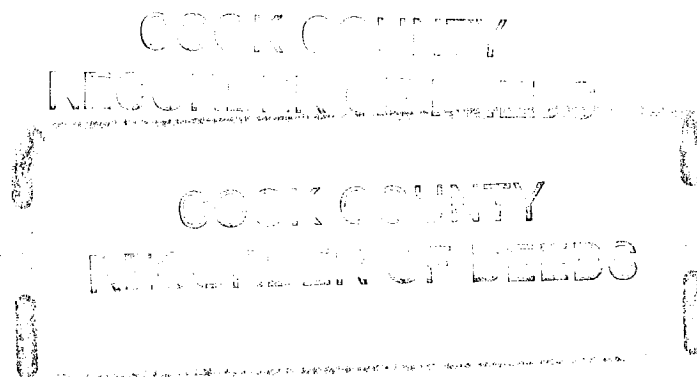 COOK COUNTY
RECORDER OF DEEDS
COOK COUNTY
RECORDER OF DEEDS